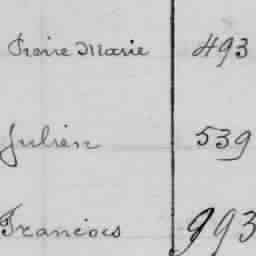 Pierre Marie 493
Julien 539
Francois 993